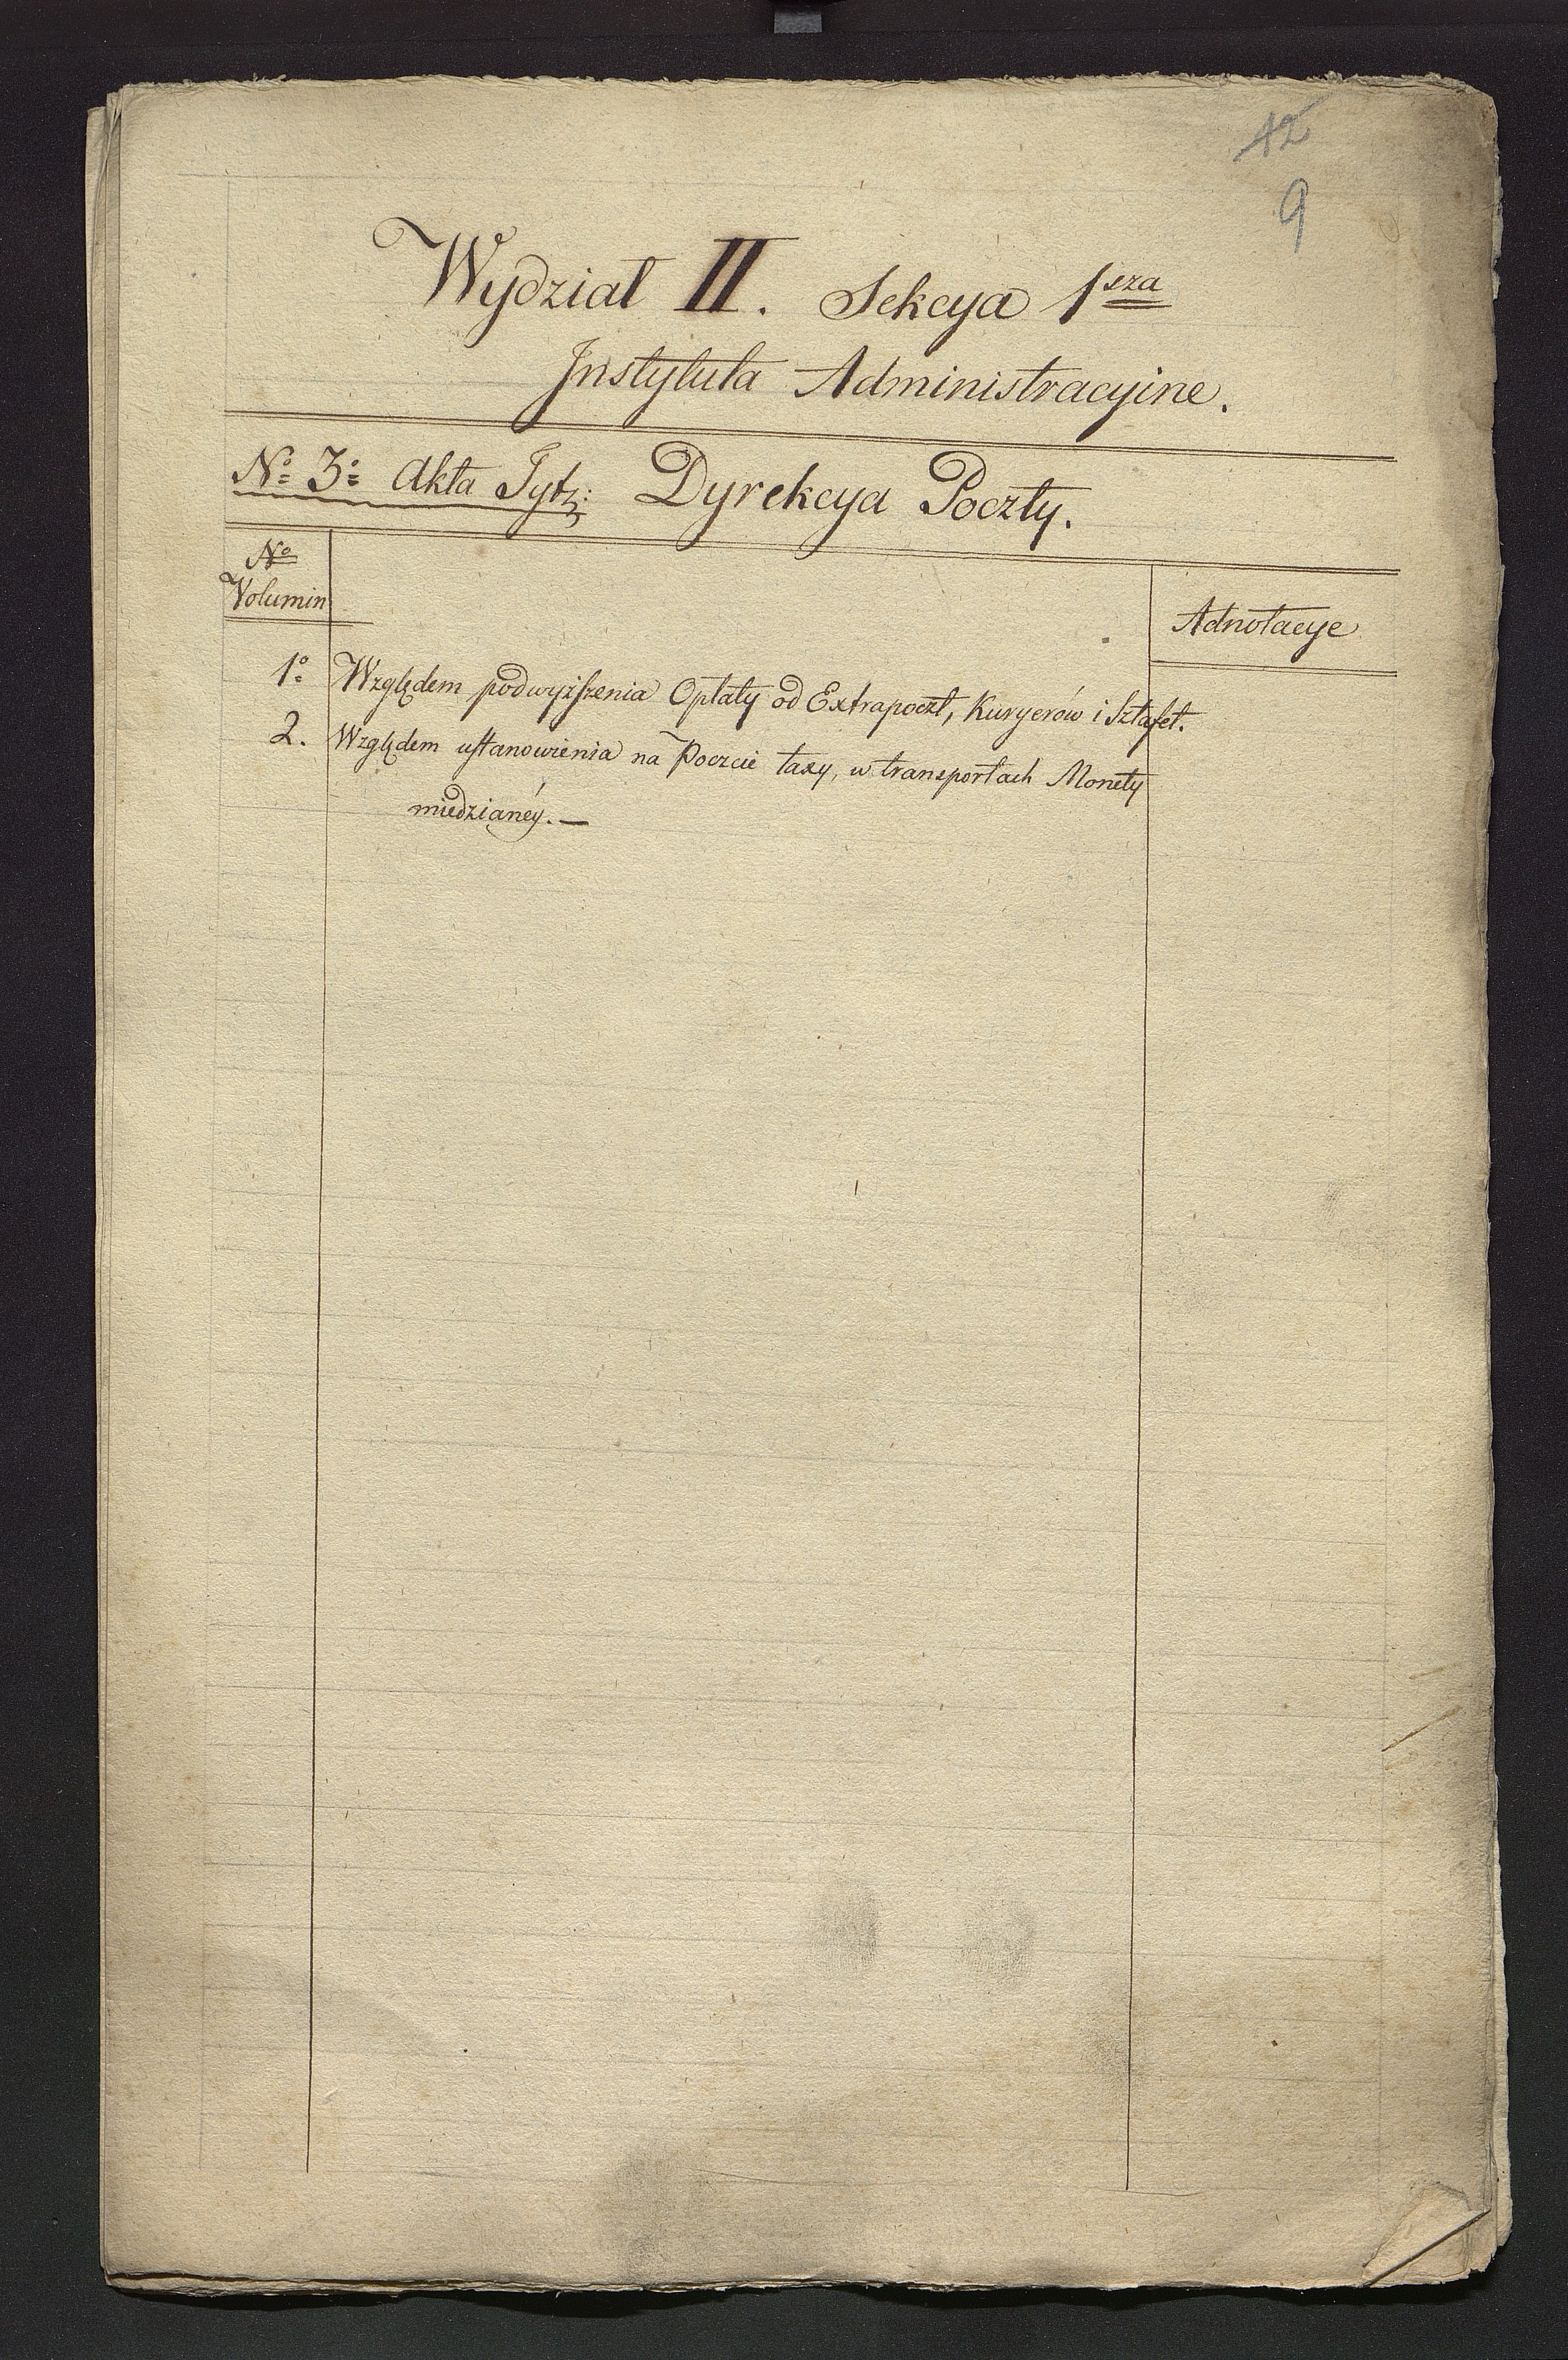 12
9
Wydział II. Sekcya 1sza
Instytuta Administracyine.
No 3o Akta Tyt: Dyrekcya Poczty.
No
Volumin
Adnotacye
1o Względem podwyższenia Opłaty od Extrapoczt, Kuryerów i Sztafet.
2. Względem ustanowienia na Poczcie taxy, w transportach Monety
miedzianéy. —